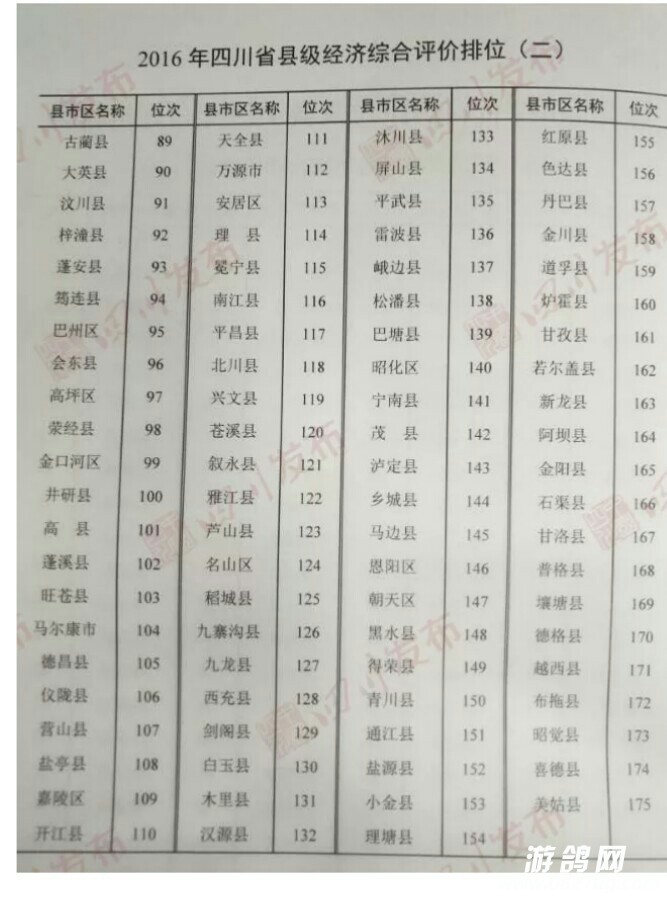 2016年四川省县级经济综合评价排位（二）
县市区名称 位次 县市区名称 位次 县市区名称 位次 县市区名称 位次
古蔺县 89 天全县 111 沐川县 133 红原县 155
大英县 90 万源市 112 屏山县 134 色达县 156
汶川县 91 安居区 113 平武县 135 丹巴县 157
梓潼县 92 理 县 114 雷波县 136 金川县 158
蓬安县 93 冕宁县 115 峨边县 137 道孚县 159
筠连县 94 南江县 116 松潘县 138 炉霍县 160
巴州区 95 平昌县 117 巴塘县 139 甘孜县 161
会东县 96 北川县 118 昭化区 140 若尔盖县 162
高坪区 97 兴文县 119 宁南县 141 新龙县 163
荥经县 98 苍溪县 120 茂 县 142 阿坝县 164
金口河区 99 叙永县 121 泸定县 143 金阳县 165
井研县 100 雅江县 122 乡城县 144 石渠县 166
高 县 101 芦山县 123 马边县 145 甘洛县 167
蓬溪县 102 名山区 124 恩阳区 146 普格县 168
旺苍县 103 稻城县 125 朝天区 147 壤塘县 169
马尔康市 104 九寨沟县 126 黑水县 148 德格县 170
德昌县 105 九龙县 127 得荣县 149 越西县 171
仪陇县 106 西充县 128 青川县 150 布拖县 172
营山县 107 剑阁县 129 通江县 151 昭觉县 173
盐亭县 108 白玉县 130 盐源县 152 喜德县 174
嘉陵区 109 木里县 131 小金县 153 美姑县 175
开江县 110 汉源县 132 理塘县 154
四川发布
游鸽网